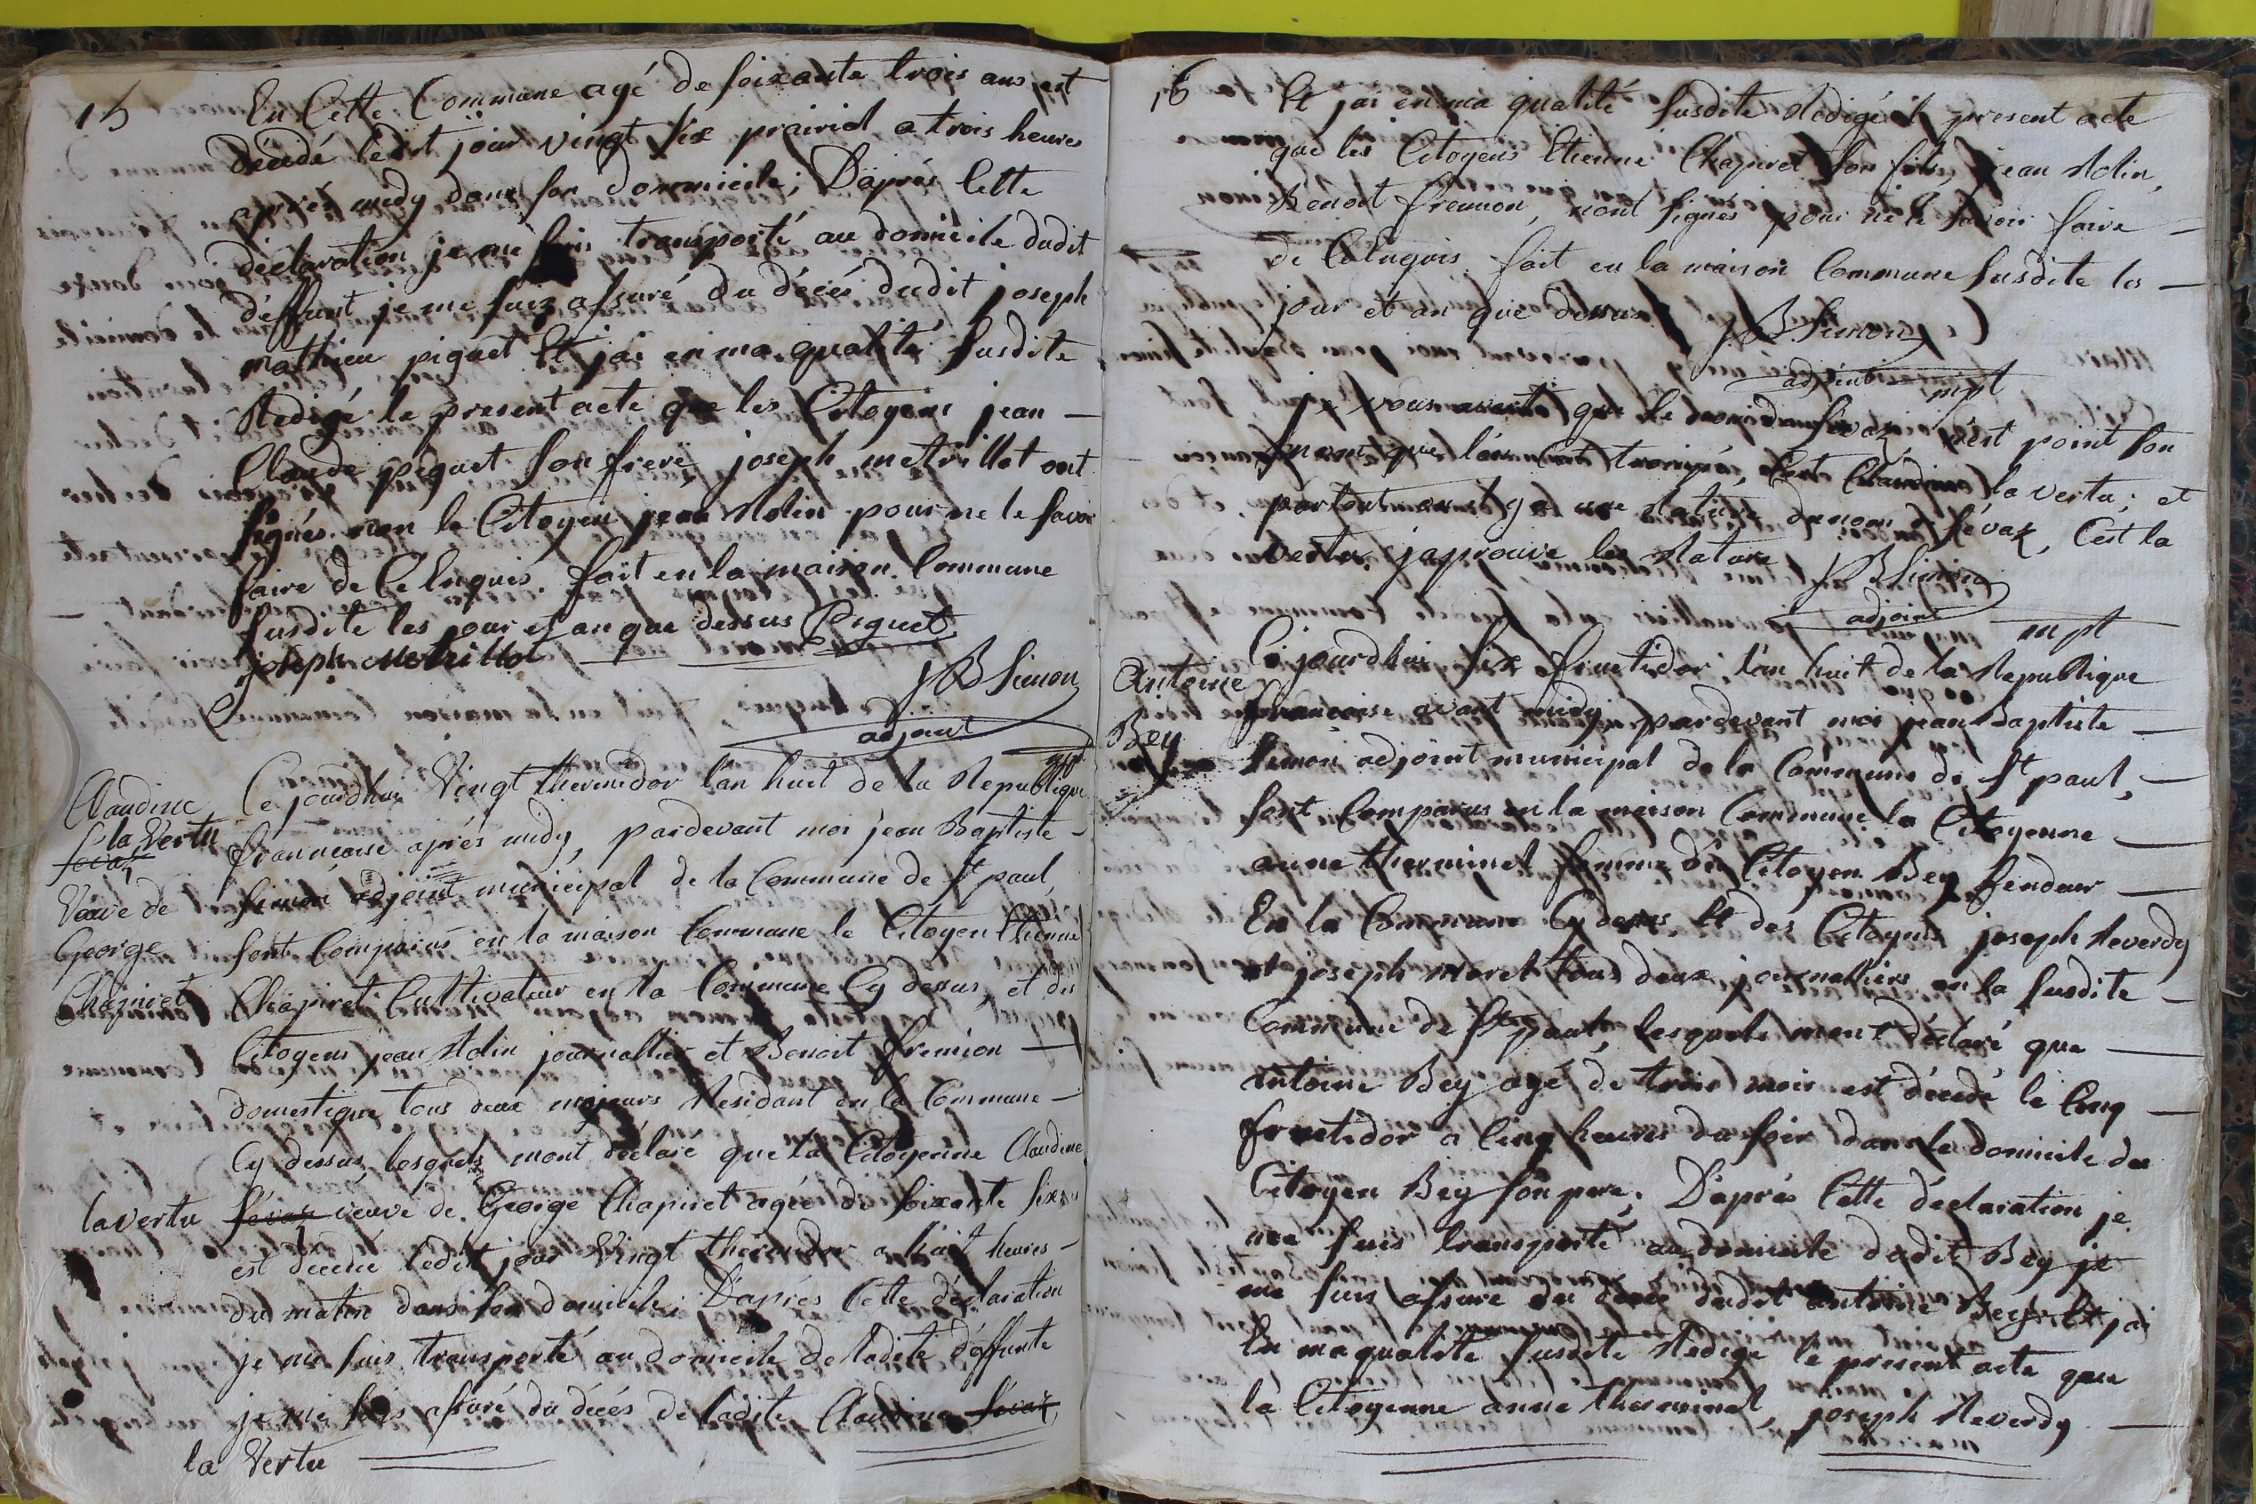 15
En Cette Commune agé de soixante trois ans est
décédé ledit jour vingt six prairial a trois heures
aprés midy dans son dommicile; D'aprés Cette
déclaration je me suis transporté au domicile dudit
déffunt je me suis assuré du décés dudit joseph
mathieu piquet Et j'ai en ma qualité susdite
Redigé le present acte que les Citoyens jean —
Claude piquet son frere joseph metrillot ont
signés non le Citoyen jean Rolin pour ne le savoir
faire de Ce Enquis. fait en la maison Commune
susdite les jour et an que dessus Piquet
joseph Metrillot
JB Simon
adjoint
Claudine
la Vertu
sévaz
Veuve de
George
Chapiret
Ce jourdhui Vingt thermidor l'an huit de la Republique
francaise aprés midy, pardevant moi jean Baptiste —
Simon adjoint municipal de la Commune de St paul,
sont Comparus en la maison Commune le Citoyen Etienne
Chapiret Cultivateur en la Commune Cy dessus, et des
Citoyens jean Rolin journallier et Benoit fremion —
domestique tous deux majeurs Residant en la Commune —
Cy dessus, lesquels mont déclaré que la Citoyenne Claudine
la vertu sévaz veuve de George Chapiret agée de soixante six ans
est décédée ledit jour Vingt thermidor a huit heures —
du matin dans son domicile; D'aprés Cette déclaration
je me suis transporté au domicile de ladite déffunte
je me suis assuré du décés de ladite Claudine sévaz,
la Vertu
16
Et jai en ma qualité susdite Redigé le present acte
que les Citoyens Etienne Chapiret son fils, jean Rolin,
Benoit fremion, nont signés pour ne le savoir faire —
de Ce Enquis. fait en la maison Commune susdite les —
jour et an que dessus.
JB Simon
adjoint mpl
je vous averti que le nom de sévaz, n'est point son
nom que l'on s'est trompé, C'est Claudine la vertu; et
partout ou il y a une Rature du nom de sévaz, C'est la
vertu japrouve les Rature JB Simon
adjoint mpl
Antoine
Bey
Ce jourdhui six fructidor, l'an huit de la Republique
francaise avant midy, pardevant moi jean Baptiste —
Simon adjoint municipal de la Commune de St paul, —
sont Comparus en la maison Commune la Citoyenne —
anne therminel femme du Citoyen Bey Rendeur —
En la Commune Cy dessus, Et des Citoyens joseph Reverdy
et joseph moret tous deux journalliers en la susdite —
Commune de St paul, lesquels mont déclaré que —
antoine Bey agé de trois mois est décédé le Cinq —
fructidor a Cinq heures du soir dans le domicile du
Citoyen Bey son pere; D'aprés Cette déclaration je
me suis transporté au domicile dudit Bey je
me suis assuré du décés dudit antoine Bey. Et jai
En ma qualité susdite Redigé le present acte que
la Citoyenne anne therminel, joseph Reverdy —